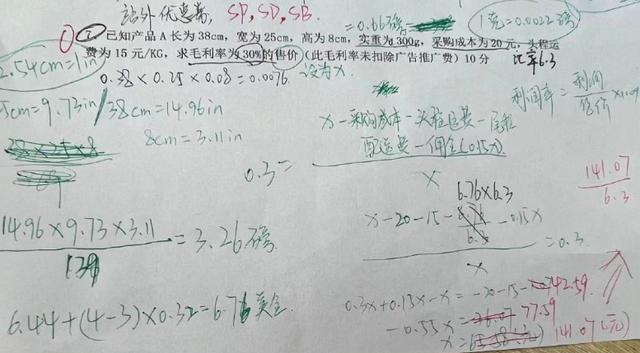 站外优惠券, SP, SD, SB.
=0.66磅
1克=0.0022磅
① 7 已知产品A长为38cm, 宽为25cm, 高为8cm, 实重为300g, 采购成本为20元, 头程运
费为15元/KG, 求毛利率为30%的售价 (此毛利率未扣除广告推广费) 10分
比率6.3
2.54cm=1in
0.38×0.25×0.08=0.0076
设为x.
5cm=9.73in/38cm=14.96in
8cm=3.11in
利润率=利润/售价×100%
0.3=
x-采购成本-头程运费-尾程
配送费-佣金(0.15x)
x
141.07
6.3
6.76×6.3
x-20-15- -0.15x
=0.3.
x
14.96×9.73×3.11
=3.26磅
139
6.44+(4-3)×0.32=6.76美金
0.3x+0.15x-x=-20-15-42.59
-0.55x=77.59
x= 141.07(元)